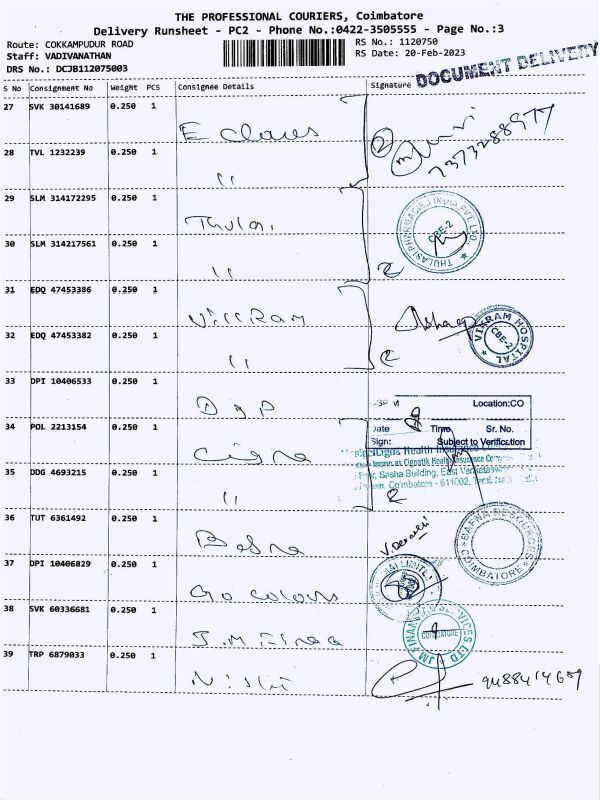 THE PROFESSIONAL COURIERS, Coimbatore
Delivery Runsheet - PC2 - Phone No.:0422-3505555 - Page No.:3
Route: COKKAMPUDUR ROAD
RS No.: 1120750
Staff: VADIVANATHAN
RS Date: 20-Feb-2023
DRS No.: DCJB112075003
DOCUMENT DELIVERY
S No Consignment No Weight PCS Consignee Details Signature
27 SVK 30141689 0.250 1
7373288977
28 TVL 1232239 0.250 1 "
29 SLM 314172295 0.250 1 Thulasi
THULASI PHARMACIES INDIA PVT LTD.
CBE-2
30 SLM 314217561 0.250 1 "
31 EDQ 47453386 0.250 1 Vikram
VIKRAM HOSPITAL
CBE-2
32 EDQ 47453382 0.250 1 "
33 DPI 10406533 0.250 1
Location:CO
Date Time Sr. No.
Sign: Subject to Verification
34 POL 2213154 0.250 1 Cigna
Cigna Health Insurance
known as Cignattk Health Insurance
Sasha Building, East
Coimbatore - 611002,
35 DDG 4693215 0.250 1 "
36 TUT 6361492 0.250 1 Bafna
BAFNA RESOURCES
COIMBATORE
37 DPI 10406829 0.250 1 Go colours
LIMITED
38 SVK 60336681 0.250 1
JM FINANCIAL SERVICES LTD
COIMBATORE
39 TRP 6879033 0.250 1